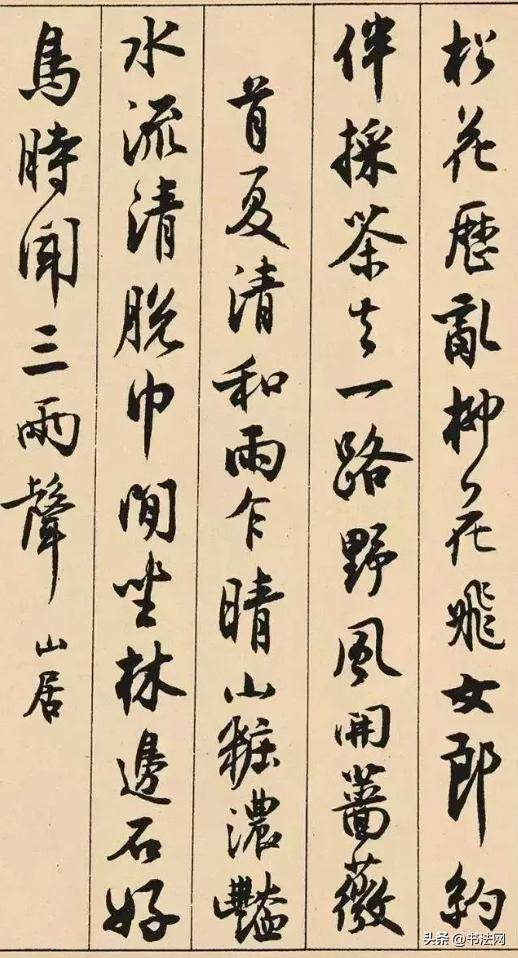 松花歷亂柳花飛女郎約
伴採茶去一路野風開薔薇
首夏清和雨乍晴山粧濃豔
水流清脫巾閒坐林邊石好
鳥時聞三兩聲
山居
头条 @书法网